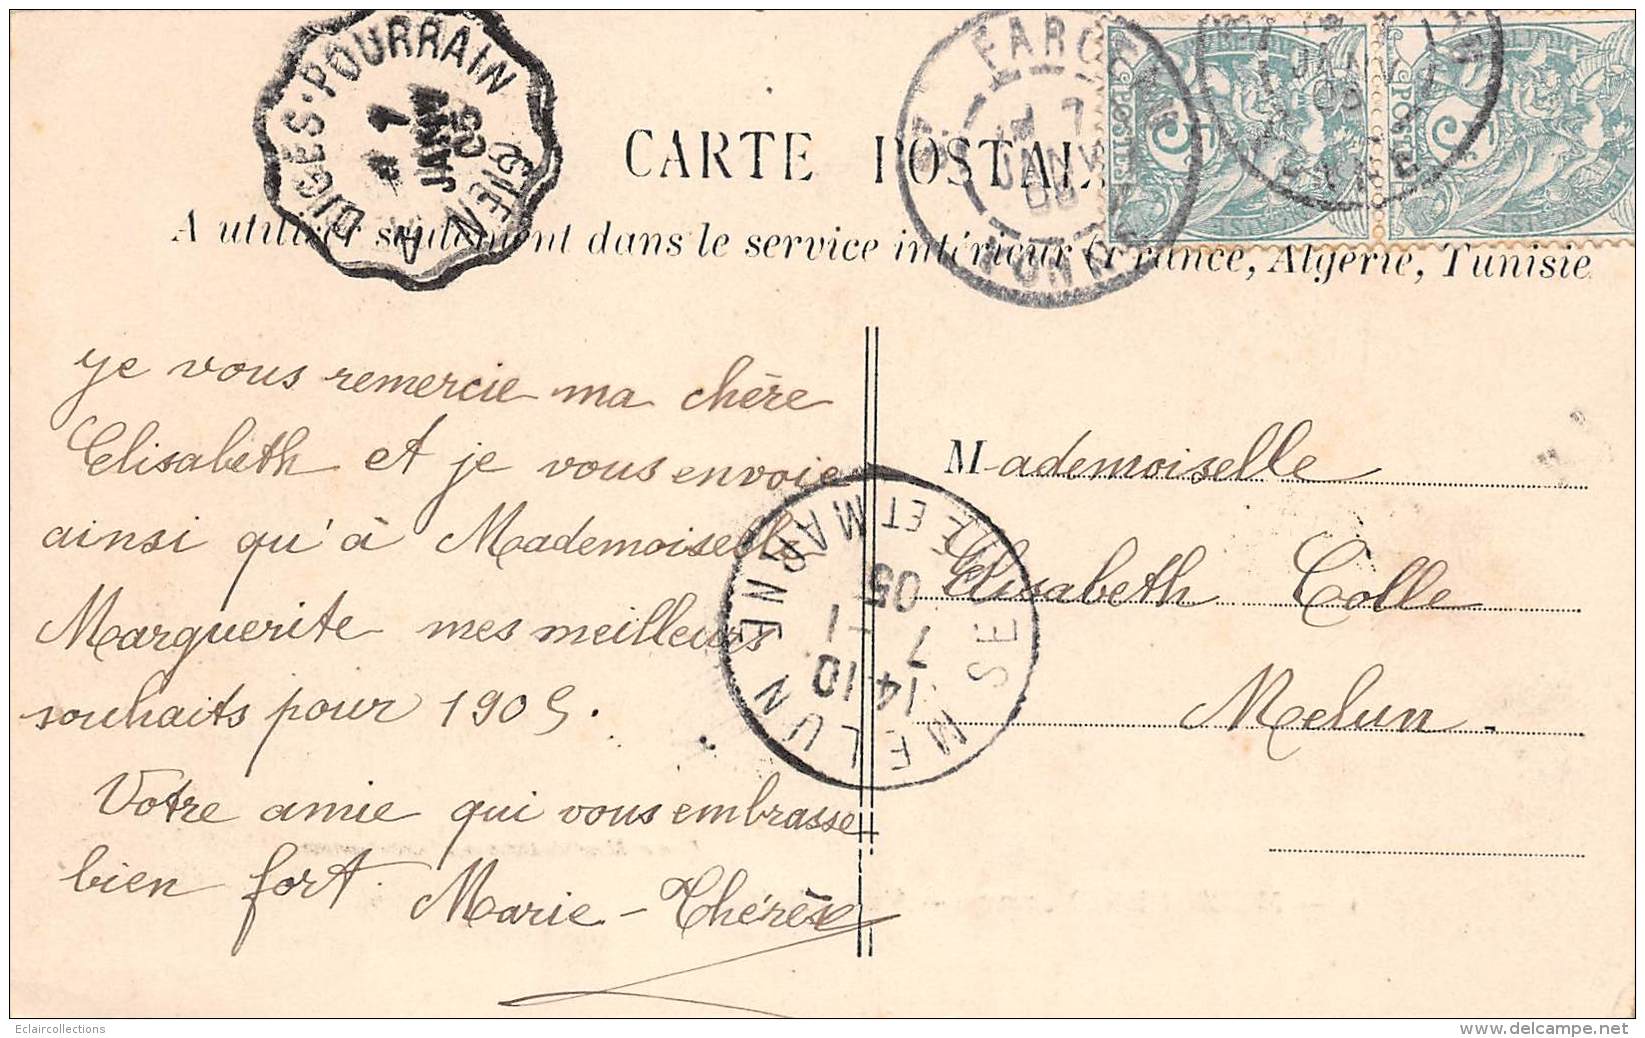 DIGES-POURRAIN A GIEN
7
JANV
05
7
JANV
05
YONNE
POSTES 5
POSTES 5
CARTE POSTALE
A utiliser seulement dans le service intérieur (France, Algérie, Tunisie
je vous remercie ma chère
Elisabeth et je vous envoie
ainsi qu'à Mademoiselle
Marguerite mes meilleurs
souhaits pour 1905.
Votre amie qui vous embrasse
bien fort. Marie-Thérèse
MELUN SEINE ET MARNE
14·10
7 - 1
05
Mademoiselle
Elisabeth Colle
Melun.
Eclaircollections
www.delcampe.net